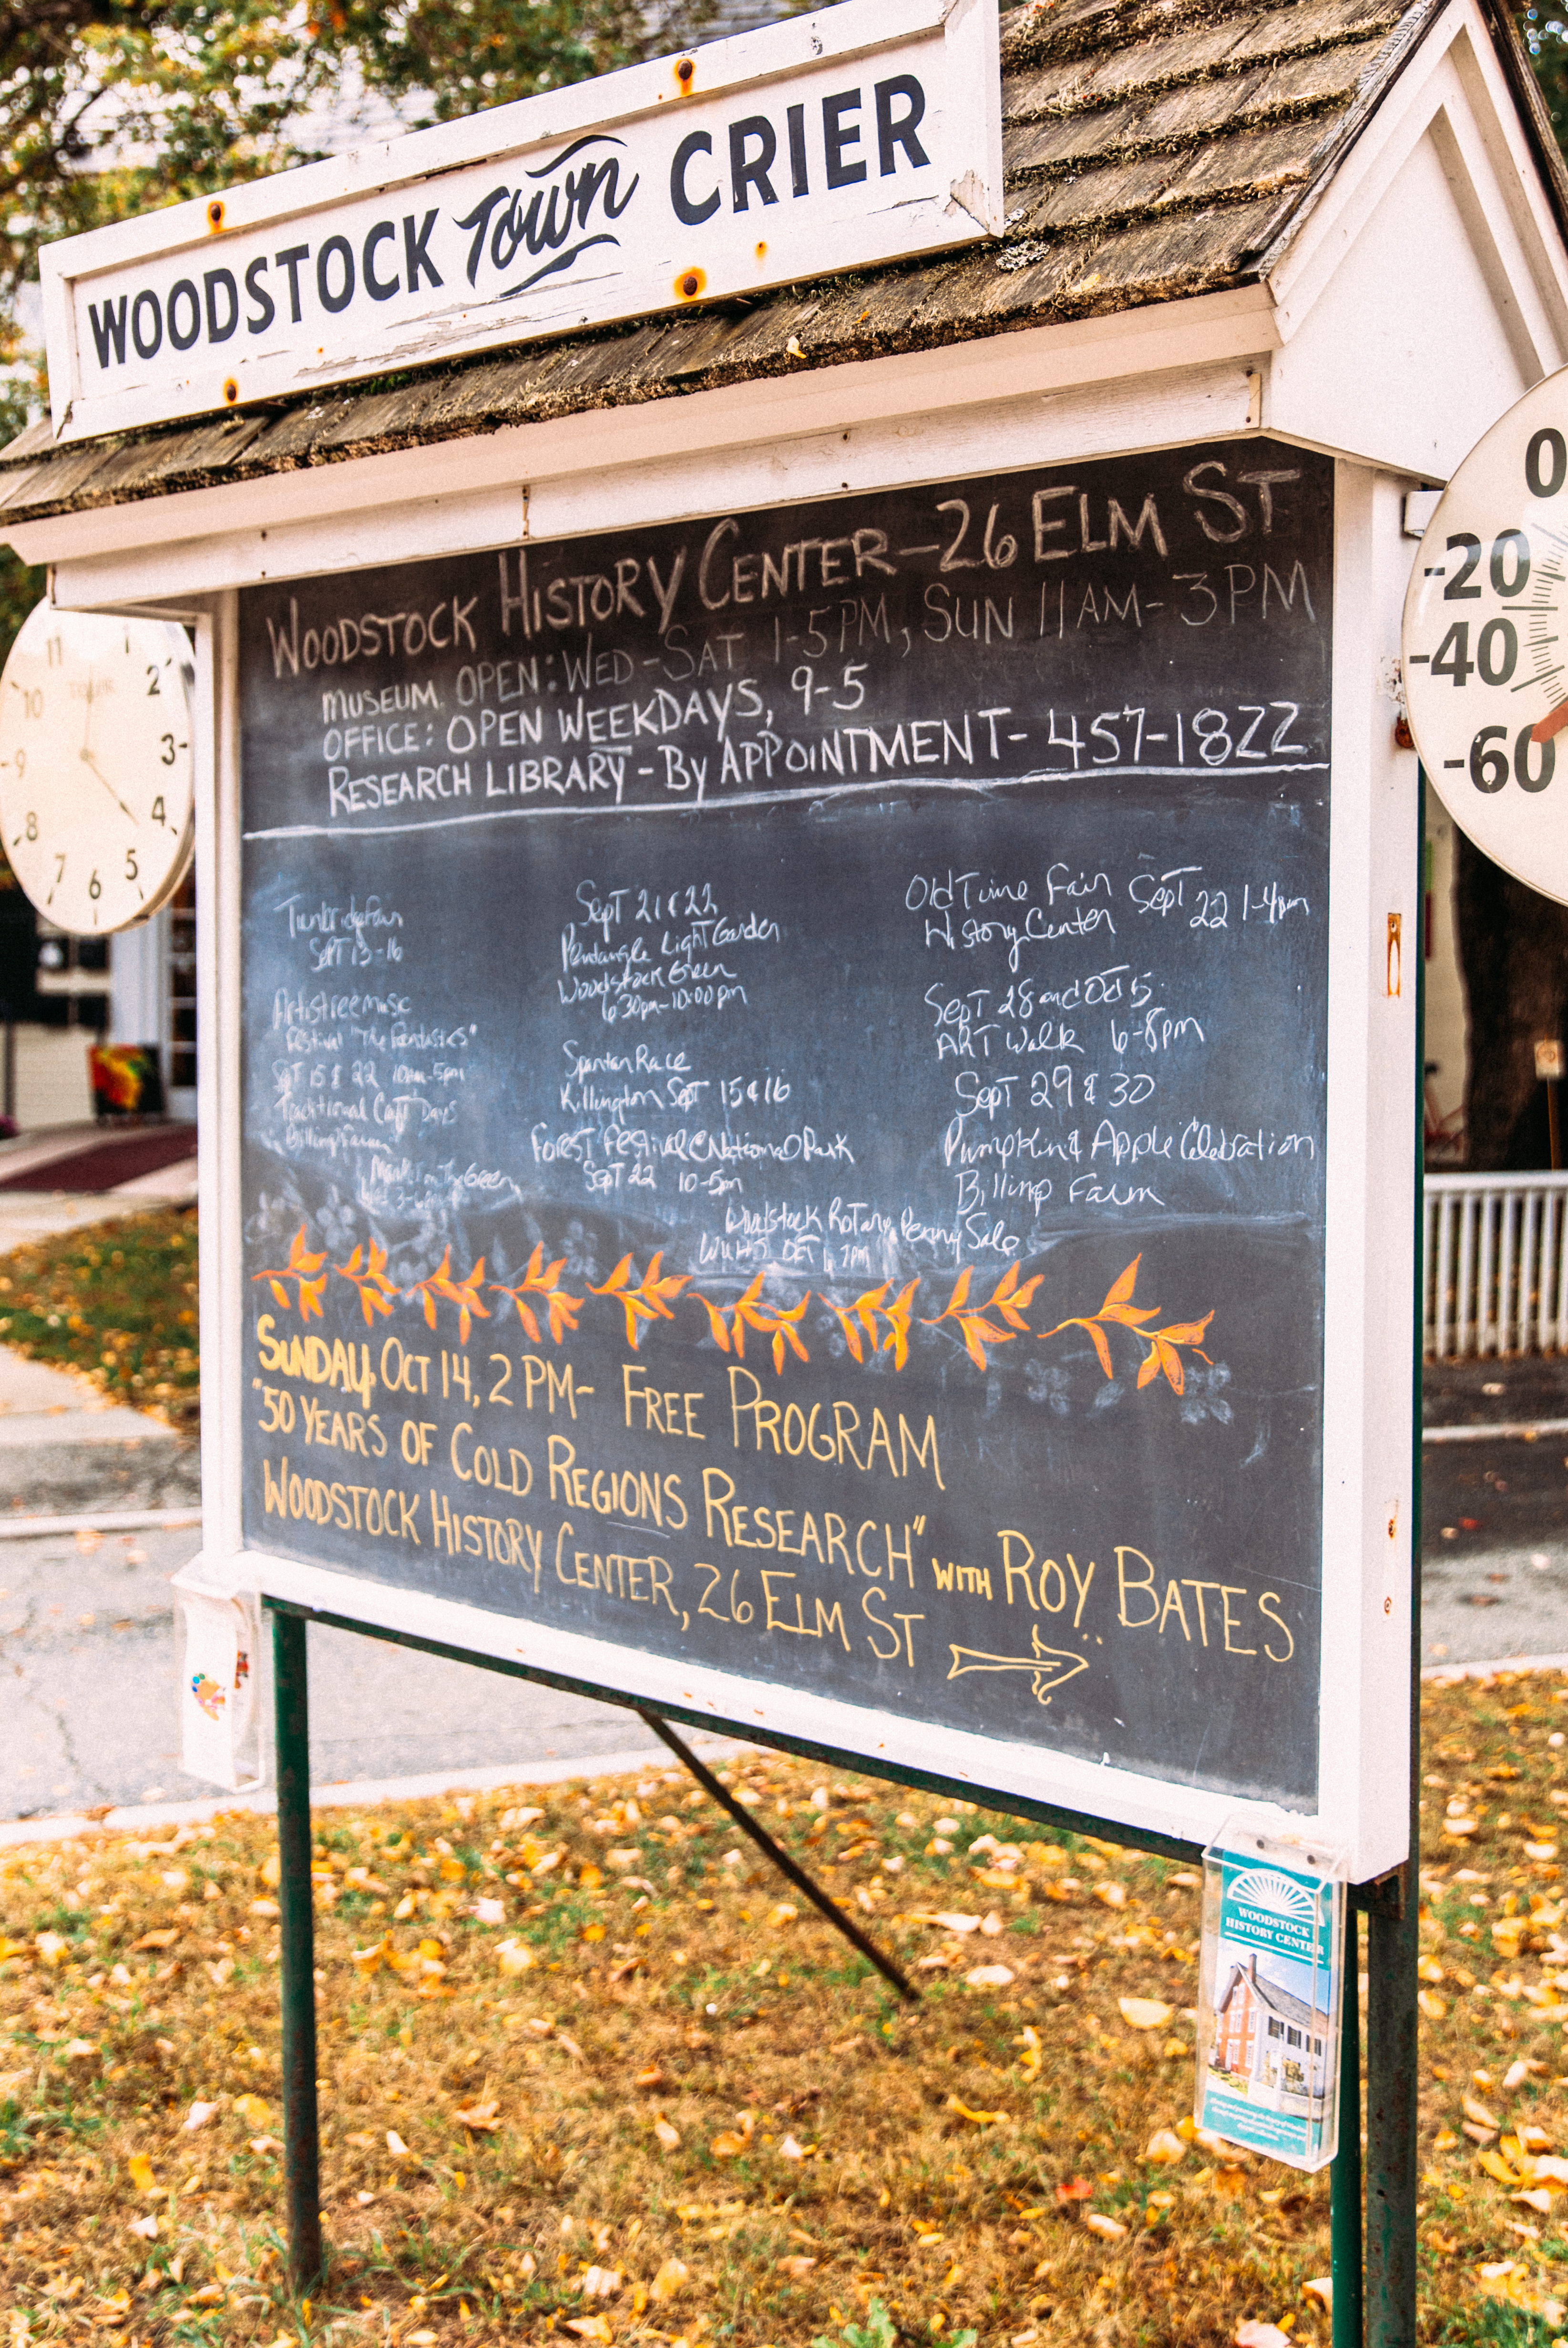 WOODSTOCK Town CRIER
WOODSTOCK HISTORY CENTER - 26 ELM ST
MUSEUM. OPEN: WED - SAT 1-5PM, SUN 11AM - 3PM
OFFICE: OPEN WEEKDAYS, 9-5
RESEARCH LIBRARY - By APPOINTMENT - 457-1822
Tunbridge Fair
SEPT 13-16
Artistree music
Festival "The Fantasticks"
SEPT 15 & 22 10am-5pm
Traditional Craft Days
Billings Farm
Market on The Green
Wed 3-6pm
Sept 21 & 22
Pentangle Light Garden
Woodstock Green
6:30pm-10:00pm
Spartan Race
Killington Sept 15 & 16
Forest Festival @ National Park
Sept 22 10-5pm
Woodstock Rotary Penny Sale
WUHS OCT 7PM
Old Time Fair Sept 22 1-4pm
History Center
Sept 28 and Oct 5
ART Walk 6-8pm
Sept 29 & 30
Pumpkin & Apple Celebration
Billings Farm
SUNDAY, OCT 14, 2 PM - FREE PROGRAM
"50 YEARS OF COLD REGIONS RESEARCH" WITH ROY BATES
WOODSTOCK HISTORY CENTER, 26 ELM ST
11
1
10
2
9
3
8
4
7
6
5
0
-20
-40
-60
WOODSTOCK
HISTORY CENTER